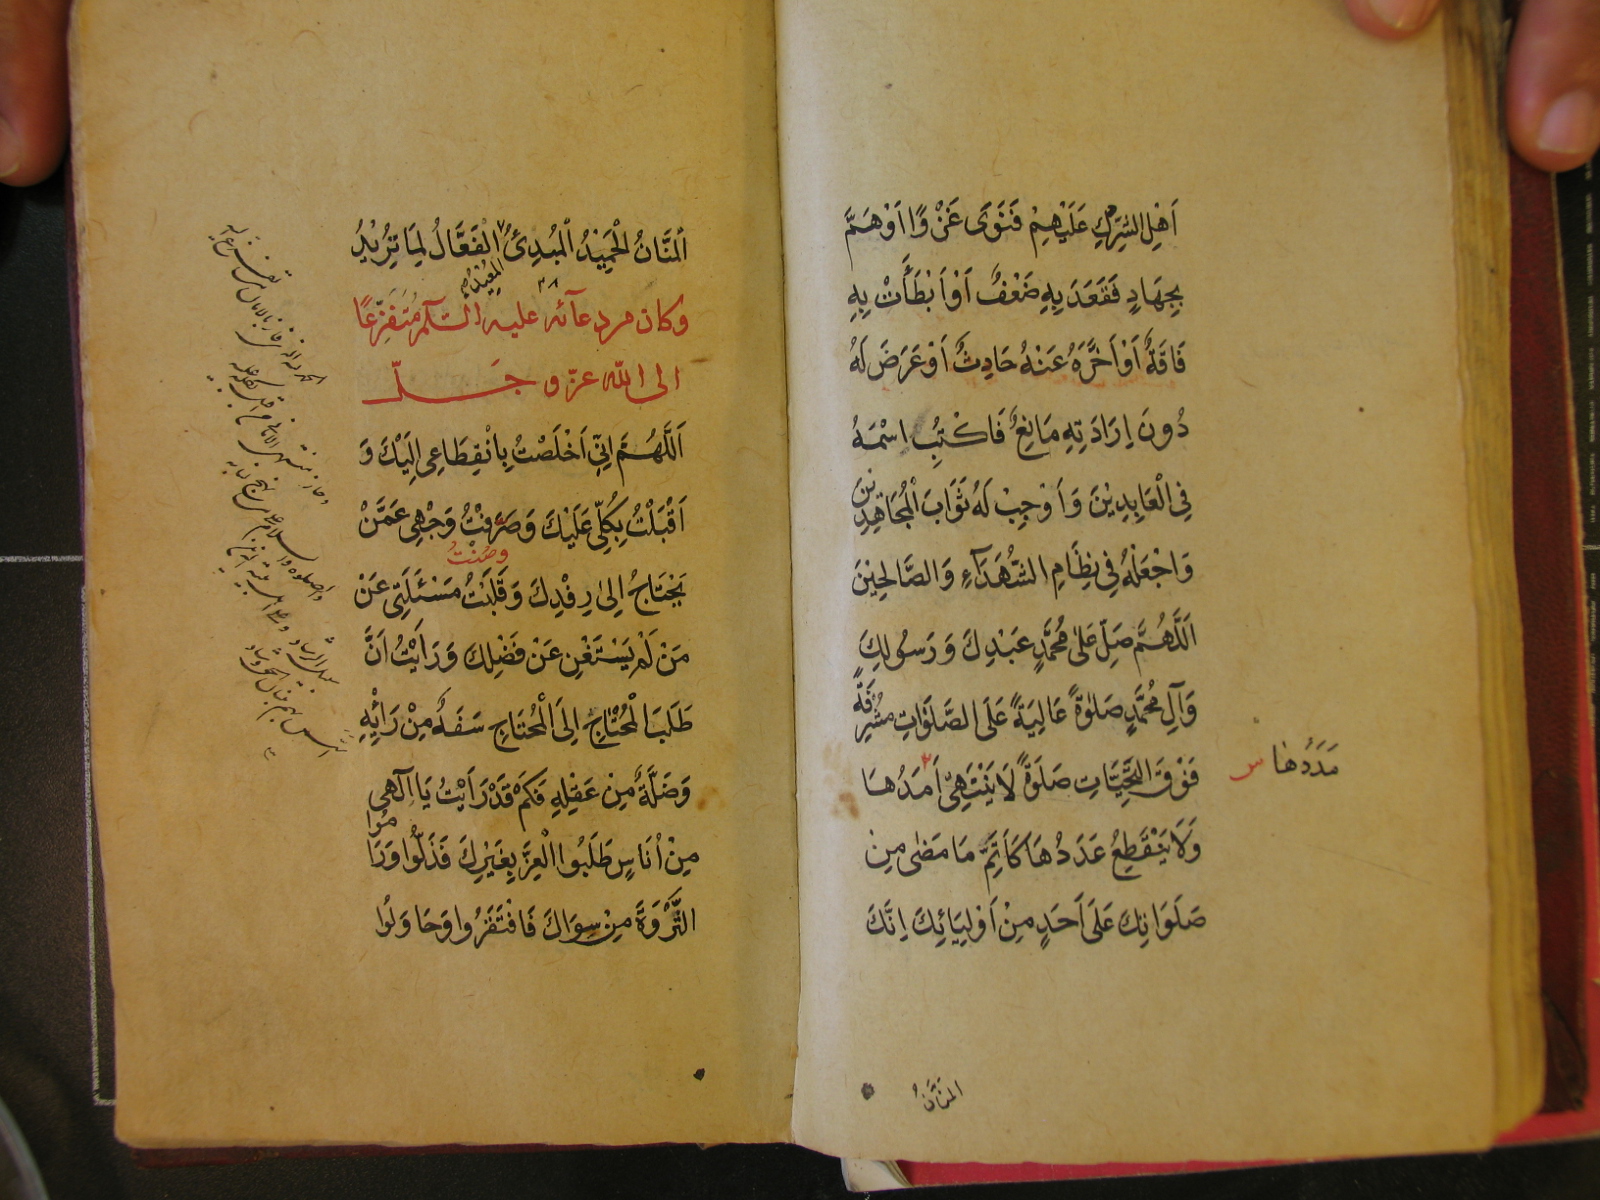 اَهْلِ الشِّرْكِ عَلَيْهِمْ فَنَوَى غَزْوًا اَوْ هَمَّ
بِجِهَادٍ فَقَعَدَ بِهِ ضَعْفٌ اَوْ اَبْطَأَتْ بِهِ
فَاقَةٌ اَوْ اَخَّرَهُ عَنْهُ حَادِثٌ اَوْ عَرَضَ لَهُ
دُونَ اِرَادَتِهِ مَانِعٌ فَاكْتُبِ اسْمَهُ
فِى الْعَابِدِيْنَ وَ اَوْجِبْ لَهُ ثَوَابَ الْمُجَاهِدِيْنَ
وَاجْعَلْهُ فِى نِظَامِ الشُّهَدَآءِ وَالصَّالِحِيْنَ
اَللَّهُمَّ صَلِّ عَلٰى مُحَمَّدٍ عَبْدِكَ وَ رَسُولِكَ
وَآلِ مُحَمَّدٍ صَلٰوةً عَالِيَةً عَلَى الصَّلَوَاتِ مُشْرِفَةً
فَوْقَ التَّحِيَّاتِ صَلَوةً لَا يَنْتَهِى اَمَدُهَا
مَدَدُهَا س
وَلَا يَنْقَطِعُ عَدَدُهَا كَاَتَمِّ مَا مَضٰى مِنْ
صَلَوَاتِكَ عَلَى اَحَدٍ مِنْ اَوْلِيَائِكَ اِنَّكَ
المَنَّانُ
اَلْمَنَّانُ الْحَمِيْدُ الْمُبْدِئُ الْفَعَّالُ لِمَا تُرِيْدُ
الْمُعِيْدُ
وكان من دعآئه عليه السّلام مُتَفَزِّعًا
الى اللّه عزّ و جَــلّ
اَللَّهُمَّ اِنِّى اَخْلَصْتُ بِانْقِطَاعِى اِلَيْكَ وَ
اَقْبَلْتُ بِكُلِّى عَلَيْكَ وَ صَرَفْتُ وَجْهِى عَمَّنْ
وصُنْتُ
يَحْتَاجُ اِلٰى رِفْدِكَ وَ قَلَبْتُ مَسْئَلَتِى عَنْ
مَنْ لَمْ يَسْتَغْنِ عَنْ فَضْلِكَ وَ رَاَيْتُ اَنَّ
طَلَبَ الْمُحْتَاجِ اِلَى الْمُحْتَاجِ سَفَهٌ مِنْ رَائِهِ
وَضَلَّةٌ مِنْ عَقْلِهِ فَكَمْ قَدْ رَاَيْتُ يَا اِلٰهِى
مِنْ اُنَاسٍ طَلَبُوا الْعِزَّ بِغَيْرِكَ فَذَلُّوا وَرَامُوا
الثَّرْوَةَ مِنْ سِوَاكَ فَافْتَقَرُوا وَحَاوَلُوا